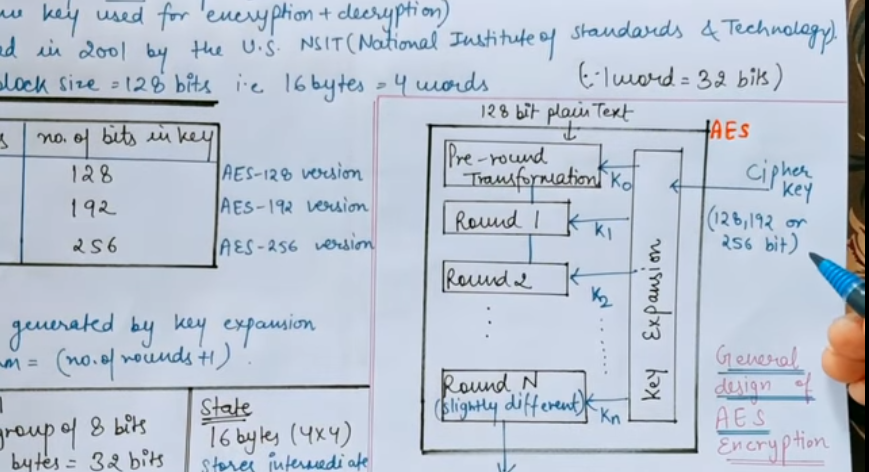 key used for encryption + decryption)
in 2001 by the U.S. NSIT (National Institute of standards & Technology).
block size = 128 bits i.e 16 bytes = 4 words (∵ 1 word = 32 bits)
no. of bits in key
128 AES-128 version
192 AES-192 version
256 AES-256 version
generated by key expansion
= (no. of rounds + 1)
group of 8 bits
bytes = 32 bits
State
16 bytes (4x4)
stores intermediate
128 bit plain Text
AES
Pre-round
Transformation
K0
Round 1
K1
Round 2
K2
Round N
(slightly different)
Kn
Key Expansion
Cipher
key
(128,192 or
256 bit)
General
design of
AES
Encryption